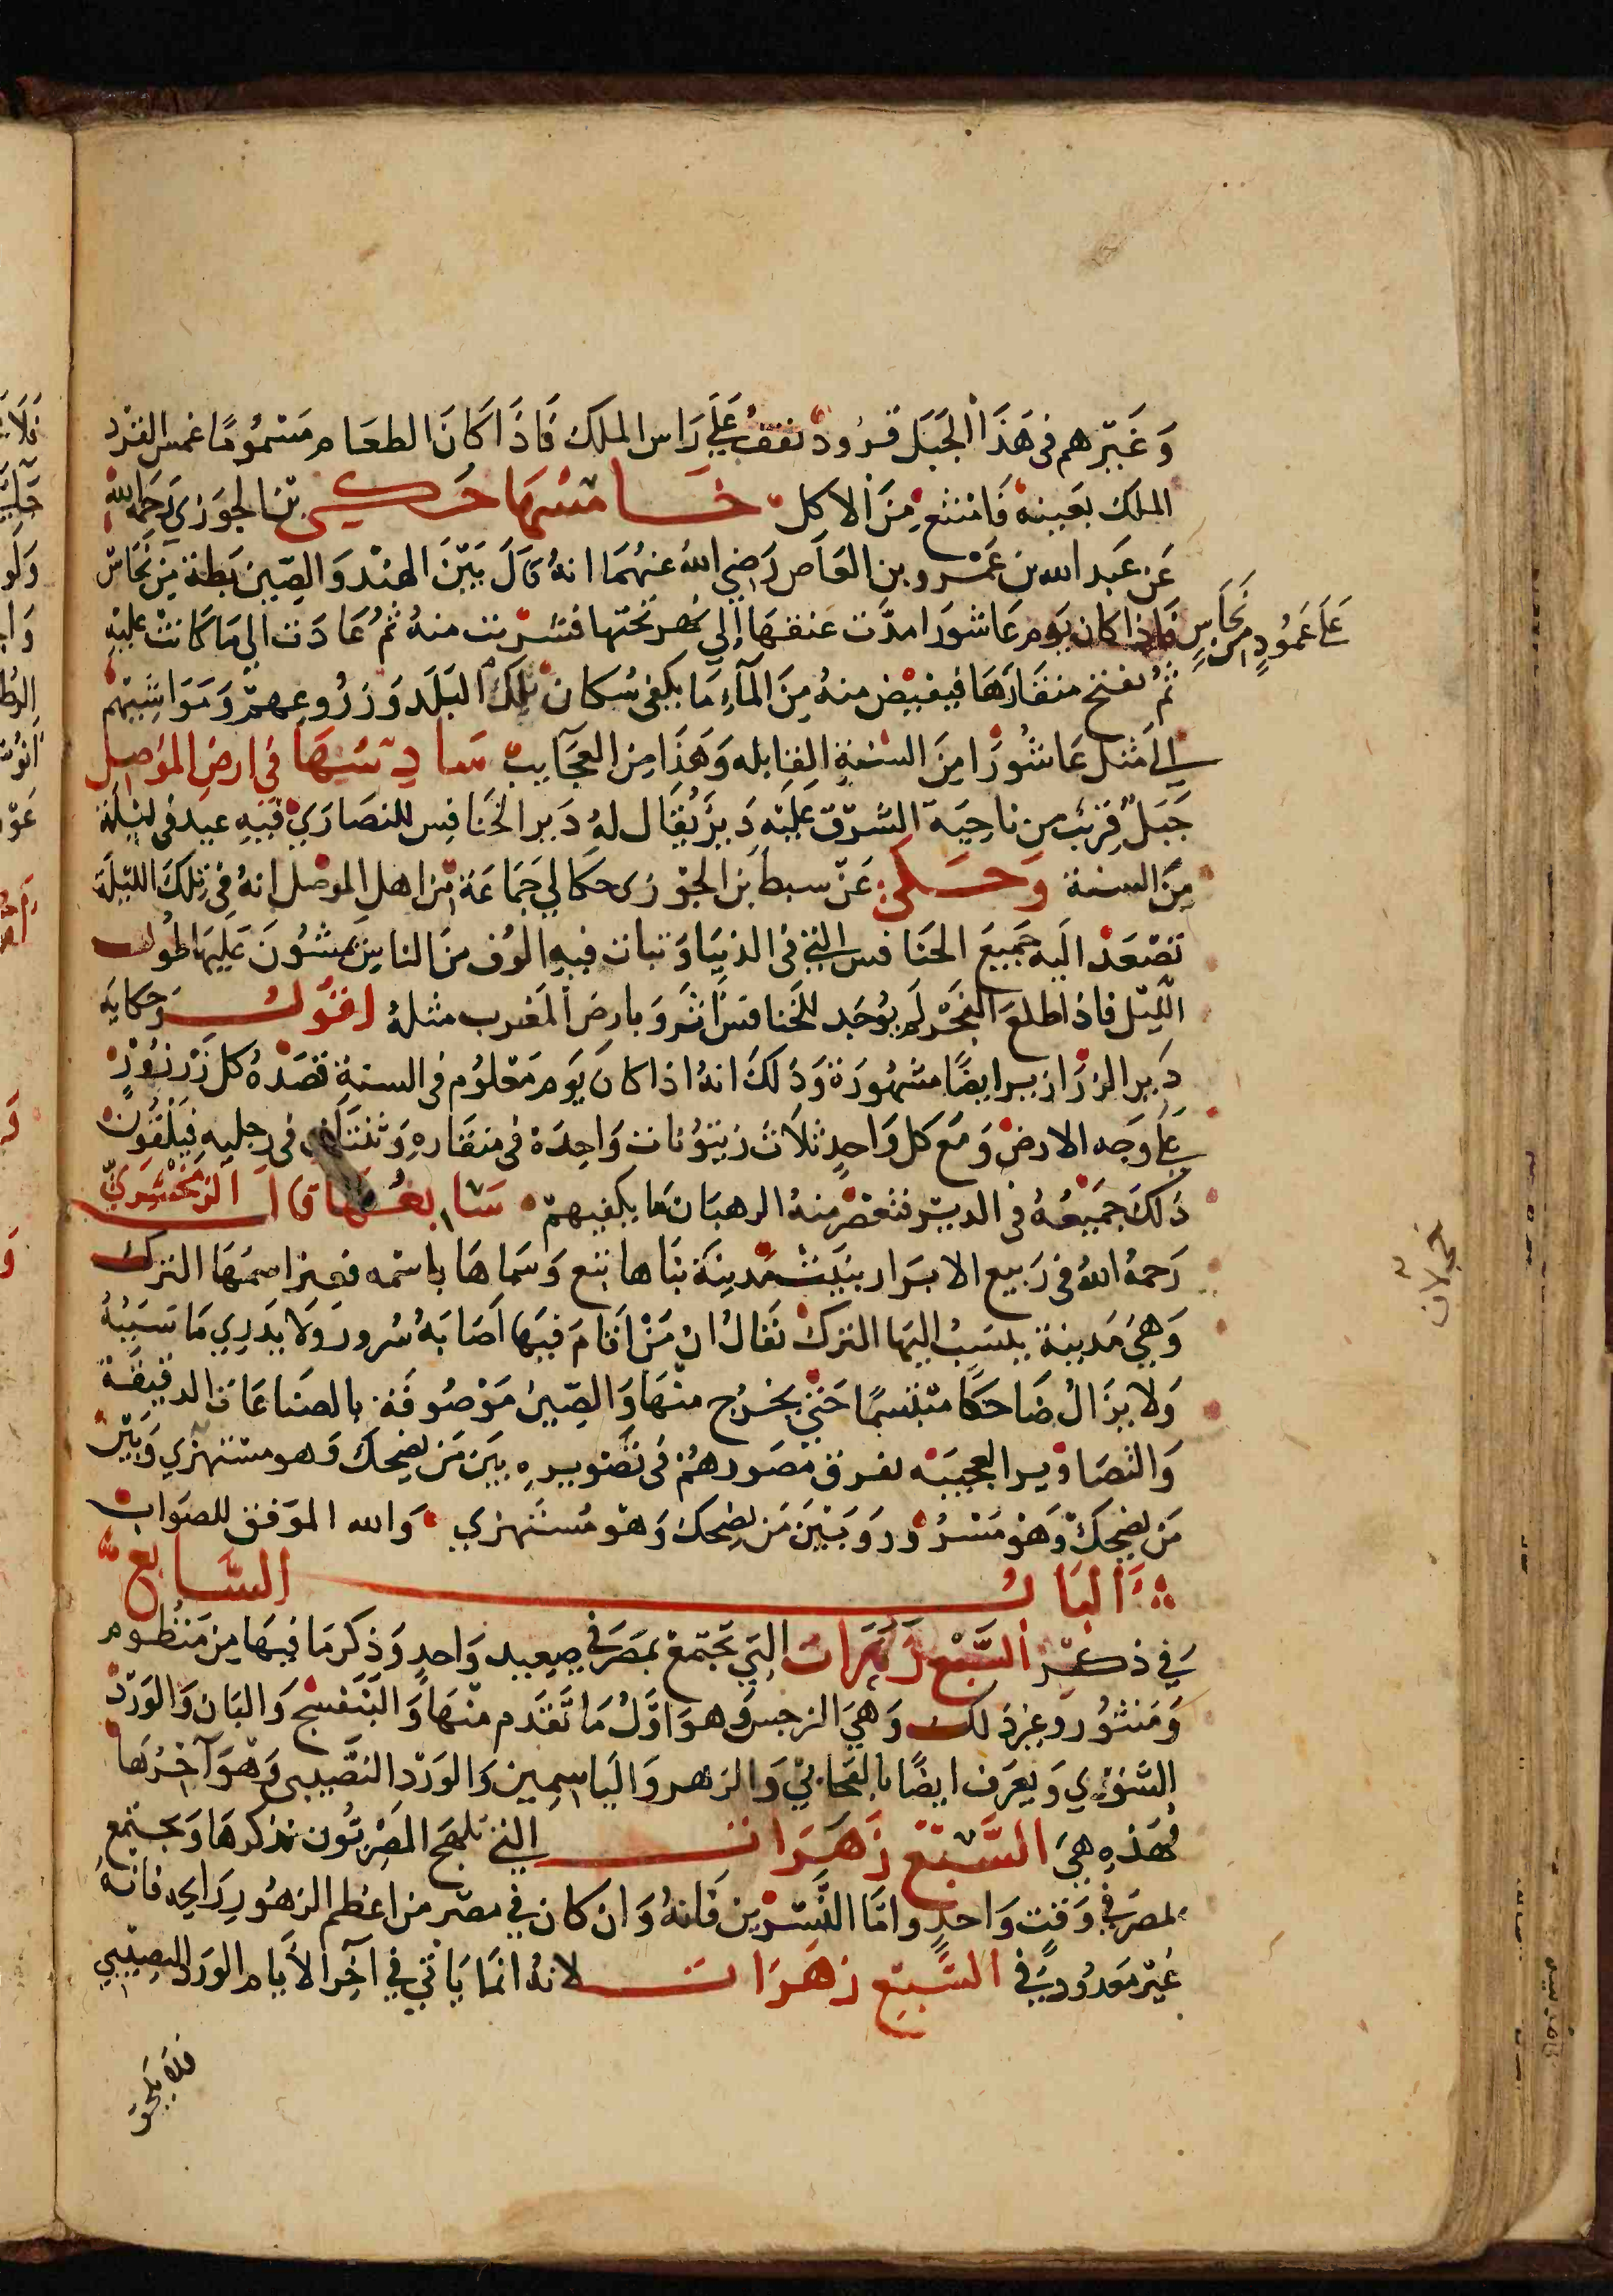 وَغَيْرهم فى هَذَا الجَبَل قرُود تقف عَلَى رَاس الملك فَاذَا كَانَ الطعَام مَسْمُومًا غمس القرْد
الملك بعَينه فَامْتنع مِنَ الاكل خَامسُهَا حَكى بْنُ الجوَزى رَحمَهُ الله
عَن عَبد الله بن عَمْرو بن العَاص رَضي اللهُ عنهُمَا انهُ قالَ بَيْنَ الهنْد وَالصِين بَطة مِن نُحَاسْ
عَلَى عَمُودٍ مِن نُحَاسٍ
فاذا كان يَوم عَاشورَا مدَّت عنقهَا إلي نهر تحتها فشرْبت منهُ ثمُ عَادَت الى مَا كَانتْ عليْه
ثمُ تفتح منقارَهَا فيفيْض منهُ مِنَ المآءِ مَا يكفى سُكان تلِكَ البَلَد وَزرُوعِهمْ وَمَوَاشيْهمْ
الي مثل عَاشُورَا مِنَ السَنةِ القابله وَهَذَا مِن العجَايب سَادِسُهَا فى ارض الموصل
جَبَل قريْب من ناحِيَة الشرْق عَليْه دَيرْ يُقَال لهُ دَير الخَنافِس للنصَارَي فيْهِ عيد في ليْلة
مِنَ السنة وَحَكى عَنْ سبط بْن الجَوْزى حكا لي جَمَاعَة مِن اهل الموصل انهُ في تِلكَ الليْلة
تصْعَد اليه جَميعَ الخَنافس التي فى الدنيَا وَتبات فيهِ الوُف مِنَ الناس يَمشُونَ عَليهَا طُول
الليْل فاذا طلعَ الفَجْر لم يُوجَد للخنافس اثَر وَبارض المغرب مثلهُ اقوُل وَحكايَه
دَير الزرَازير ايضًا مشهُورَة وَذلكَ انهُ اذا كانَ يَوم مَعْلوُم فى السنةِ قصَدَهُ كل زرْزوُرٍ
عَلَى وَجه الارض وَمَع كل وَاحِدٍ ثلاَثَ زيتوُنات وَاحِدَة فى منقَاره وَثنتَان فى رجليه فيَلقُون
ذَلكَ جَميْعُهُ فى الديْر فتعْصر منهُ الرهبَان مَا يكفيهمْ سَابعُهَا قال الزمَخشَريّ
رَحمهُ اللهُ فى رَبيع الابرَار بتبَّت مَدينَة بنَاها تبّع وَسَماهَا باسْمه فغيَّر اسمَهَا الترك
وَهِيَ مَدينة ينسَبُ اليهَا الترك يقَالُ ان مَنْ اقامَ فيهَا اصَابَهُ سُرور وَلا يدَري مَا سَبَبهُ
وَلا يزَالُ ضَاحكًا متبسمًا حَتي يخرُج منْهَا وَالصِيْن مَوْصُوفَة بالصنَاعَات الدقيقَة
وَالتصَاوْير العجيبه يفرق مُصَورهُمْ فى تصْويره بَين مَن يضحِكَ وَهو مستهزي وَبَيْن
مَن يضحِكْ وَهوَ مسْرُور وَبَيْنَ مَن يضحِك وَهو مُستهزي وَالله الموَفق للصوَاب
البَاب السَّابع
في ذكر السَّبع زهَرَات التي تجتمع بمصَر في صعيد وَاحدٍ وَذكر مَا فيهَا مِن منظوم
وَمَنثوُر وغير ذلك وَهيَ النرجس وَهوَ اوَّلُ مَا تقدَم منْهَا وَالبَنفسْج وَالبَان وَالوَرْد
وَيعرَف ايضًا بالقحابي وَالزهر وَاليَاسمين وَالورْد النصَّيبى وَهوَ آخرُهَا
فهَذه هيَ السَّبْع زَهَرَات التي تلهج المصْريُون بذكرهَا وَيجتمع
بمصَر فى وَقت وَاحدٍ وامَّا النسْرين فَانهُ وَان كان في مصْر من اعظم الزهوُر رَايحه فانهُ
غيْر مَعدُود في السَّبع زهَرَات لانهُ انمَا يَاتي في آخر الاَيام الوَرْد النصِيْبي
فلا يلحق